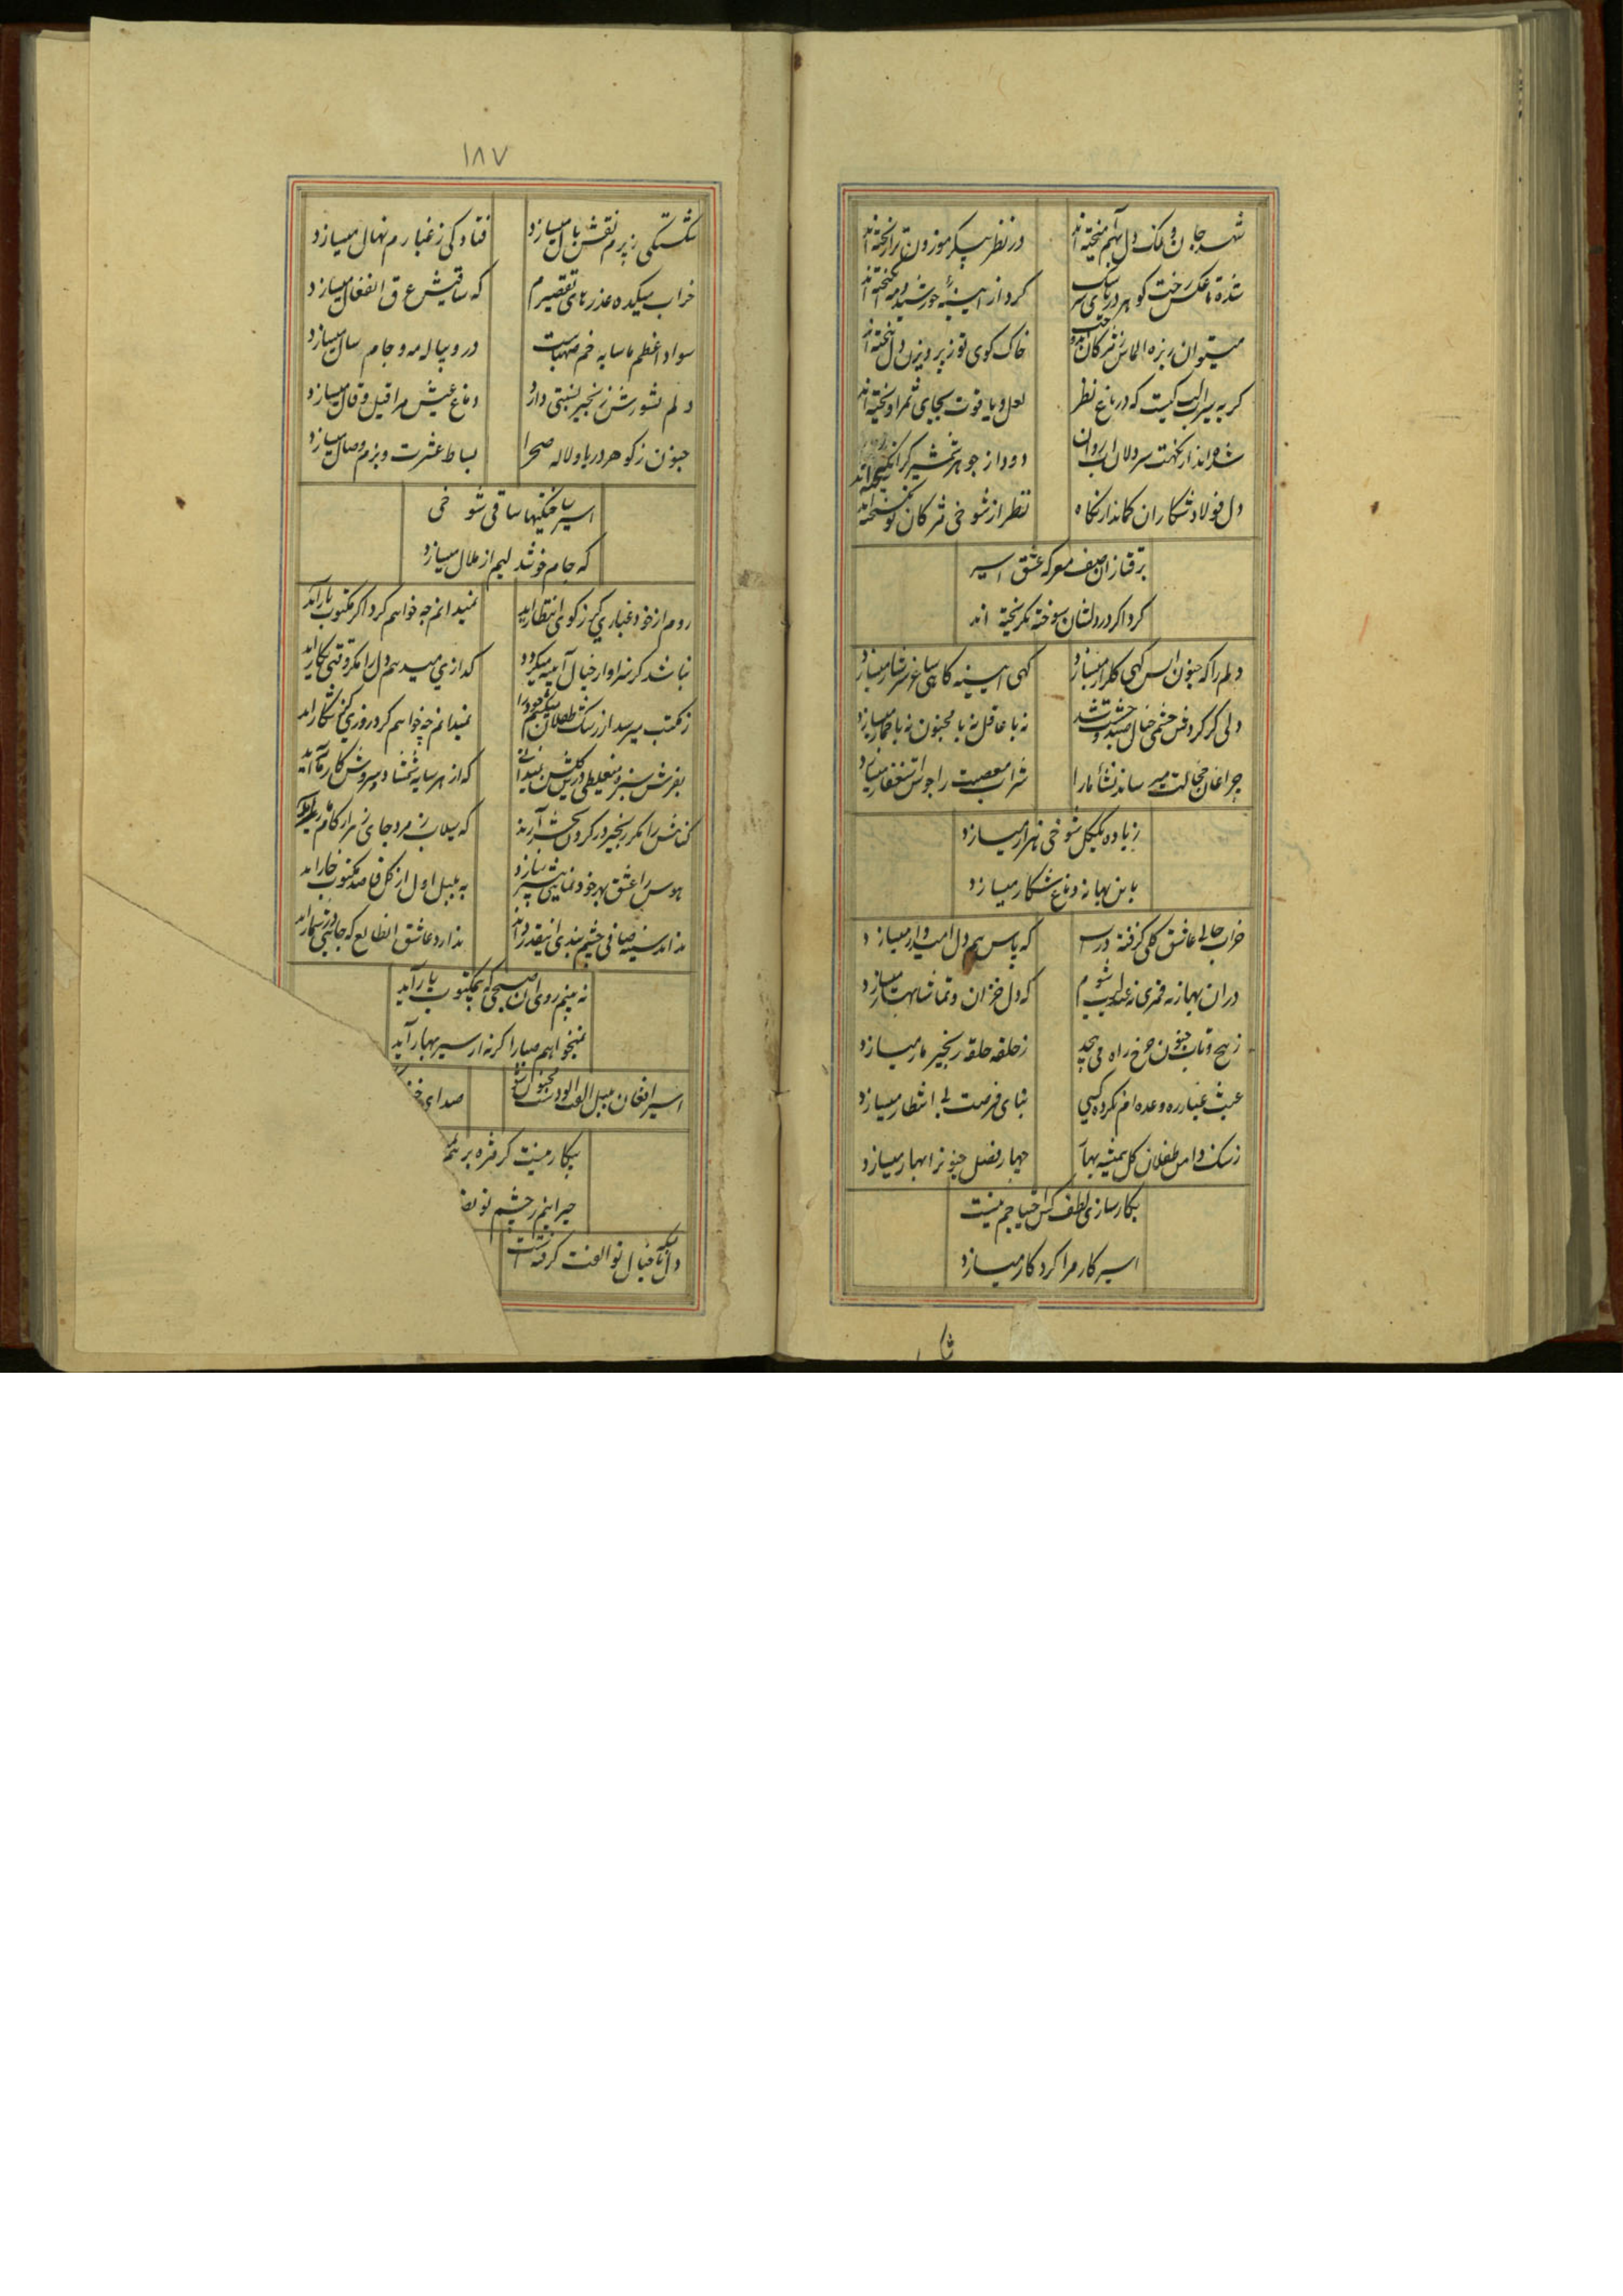 شهد جان و نمک دل بهم آمیخته اند
در نظر پیکر موزون ترا ریخته اند
شده تا عکس رخت کوهر دریای
کرد از آیینهٔ خورشید
میتوان ریزه الماس ز مژکان
خاک کوی تو ز پرویزن دل بیخته اند
کریه سیراب کیست که در باغ نظر
لعل و یاقوت بجای ثمر آویخته اند
شده اند از نکهت
دود از جوهر شمشیر
دل فولاد شکاران کماندار نکاه
نظر از شوخی مژکان تو
برقتازان صف معرکه عشق اسیر
کرد اکر در دلشان سوخته نکریخته اند
دلم را که جنون کهی کلزار میسازد
کهی آیینه کاهی ساغر سرشار میسازد
دلی کز کردش چشمی خیال
نه با عاقل نه با مجنون نه با خمار میسازد
چراغان خجالت میرساند نشأ ما را
شراب معصیت را جوش استغفار میسازد
زیاده بیکل شوخی هزار میسازد
باین بهانه دماغ شکار میسازد
خراب حالی عاشق کلی کرفته
که یاس هم دل امیدوار میسازد
در آن بهار نه قمری نه عندلیب شوم
که دل خزان و تماشا بهار میسازد
ز پیچ و تاب جنون چرخ راه می پیچد
ز حلقه حلقه زنجیر مار میسازد
عبث غبار ره وعده ام نکرده کسی
بنای فرصت بی انتظار میسازد
ز سنک دامن طفلان کل همیشه بهار
چهار فصل جنونرا بهار میسازد
بکارسازی لطف کس احتیاجم نیست
اسیر کار مرا کردکار میسازد
۱۸۷
شکستکی ز پرم نقش بال میسازد
فتادکی ز غبارم نهال میسازد
خراب میکده عذرهای تقصیرم
که ساقیش عرق انفعال میسازد
سواد اعظم ما سایه خم صهباست
در و پیاله مه و جام سال میسازد
دلم بشورش زنجیر نسبتی دارد
دماغ عیش مرا قیل و قال میسازد
جنون ز کوهر دریا و لاله صحرا
بساط عشرت و بزم وصال میسازد
اسیر ساختکیها ساقی شوخی
که جام خوشدلیم از ملال میسازد
روم از خود غباری کر ز کوی انتظار آید
نمیدانم چه خواهم کرد اکر مکتوب یار آید
نباشد کر سزاوار خیال آیینه میکردد
کدازی میدهم دل را مکر وقتی بکار آید
ز مکتب میرسد از سنک طفلان
نمیدانم چه خواهم کرد روزی کز شکار آید
بفرش سبزه میغلطی در کلشن نمیدانی
که از هر سایه شمشاد و سروش کار مار آید
کناهش را مکر زنجیر در کردن بحشر آرند
که سیلاب زمرد جای زهر از کام
هوس را عشق بهر خودنمایی شیر میسازد
به بلبل اول از کل قاصد مکتوب خار آید
نداند سینه صافی چشم بندی
ندارد عاشق آن طالع که جایی در شمار آید
نه بینم روی آن صبحی که بیمکتوب یار آید
نمیخواهم صبا را کر نه از سیر بهار آید
اسیر افغان بلبل الفت آلودست
صدای
بیکار نیست کر مژه بر هم
حیرانیم ز چشم تو
دل با خیال تو الفت کرفته است